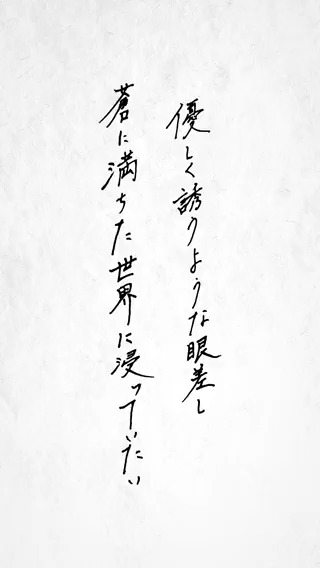 優しく誘うような眼差し
蒼に満ちた世界に浸っていたい